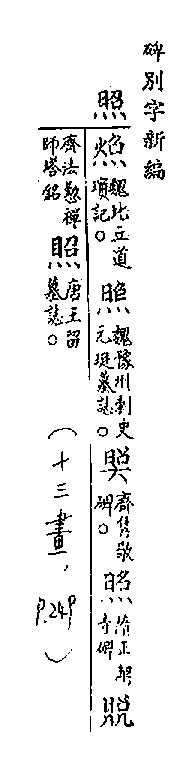 碑別字新編
照
焣魏比丘道
瓆記。
㷖魏豫州刺史
元珽墓誌。
齊雋敬
碑。
隋正解
寺碑
齊法懃禪
師塔銘
照唐王留
墓誌。
(十三畫,
p.249)